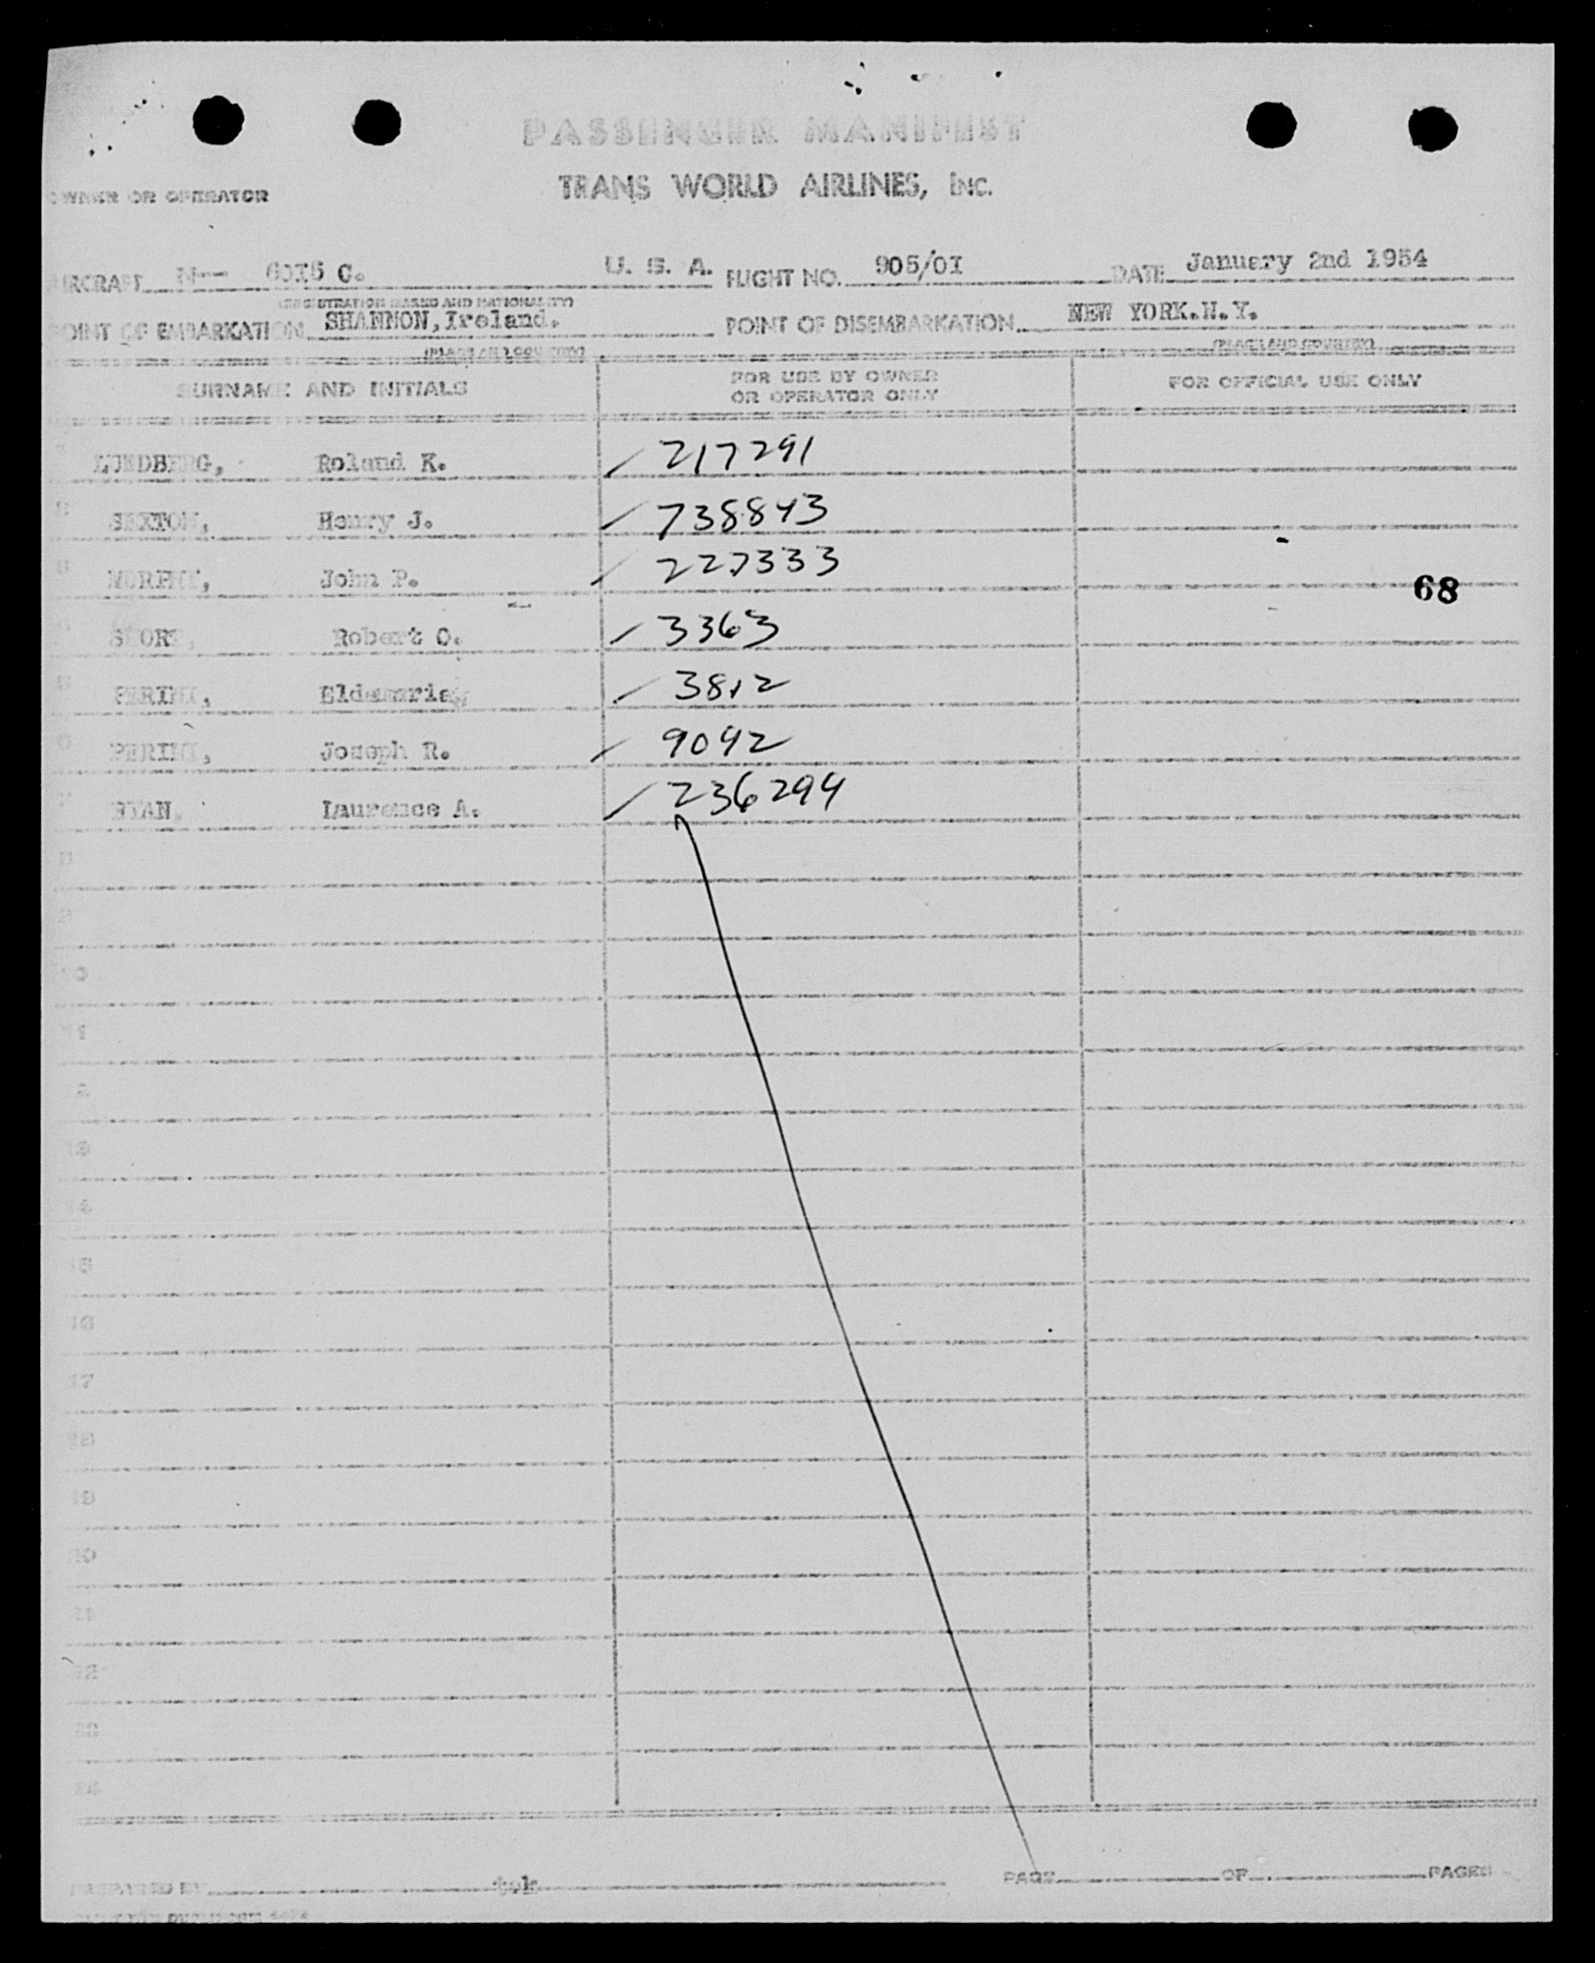 PASSENGER MANIFEST
TRANS WORLD AIRLINES, INC.
OWNER OR OPERATOR
AIRCRAFT N-- 6015 C. U. S. A. FLIGHT NO. 905/01 DATE January 2nd 1954
(REGISTRATION MARKS AND NATIONALITY)
POINT OF EMBARKATION SHANNON, Ireland. POINT OF DISEMBARKATION NEW YORK.N.Y.
(PLACE AND COUNTRY) (PLACE AND COUNTRY)
SURNAME AND INITIALS FOR USE BY OWNER OR OPERATOR ONLY FOR OFFICIAL USE ONLY
LUNDBERG, Roland K. 217291
SEXTON, Henry J. 738843
MURPHY, John P. 227333
68
Robert O. 3363
PERINI, Eldamarie 3812
PERINI, Joseph R. 9042
RYAN, Laurence A. 236294
10
13
14
15
16
17
18
19
20
PREPARED BY PAGE OF PAGES